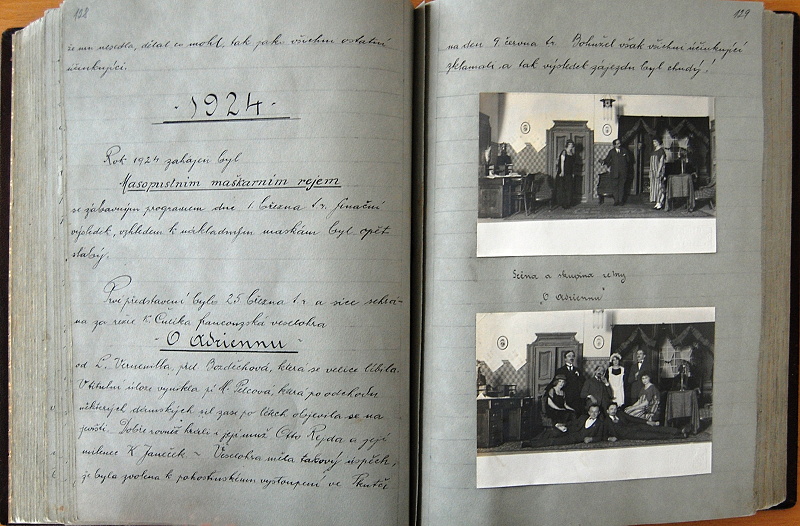 128
že mu nesedla, dělal co mohl, tak jako všichni ostatní
účinkující.
- 1924 -
Rok 1924 zahájen byl
Masopustním maškarním rejem
se zábavným programem dne 1. března t.r. finační
výsledek, vzhledem k nákladným maskám byl opět
slabý.
Prvé představení bylo 25 března t.r. a sice sehrá-
na za režie K. Čulíka francouzská veselohra
- O Adriennu -
od L. Verneuilla, přel. Bozděchová, která se velice líbila.
V titulní úloze vynikla pí M. Pelcová, která po odchodu
některých dámských sil zase po létech objevila se na
jevišti. Dobře rovněž hráli i její muž Otto Rejda a její
milenec K. Janeček - Veselohra měla takový úspěch,
že byla zvolena k pohostinskému vystoupení ve Skutči
129
na den 9 června t.r. Bohužel však všichni účinkující
zklamali a tak výsledek zájezdu byl chudý!
Scéna a skupina ze hry
"O Adriennu"